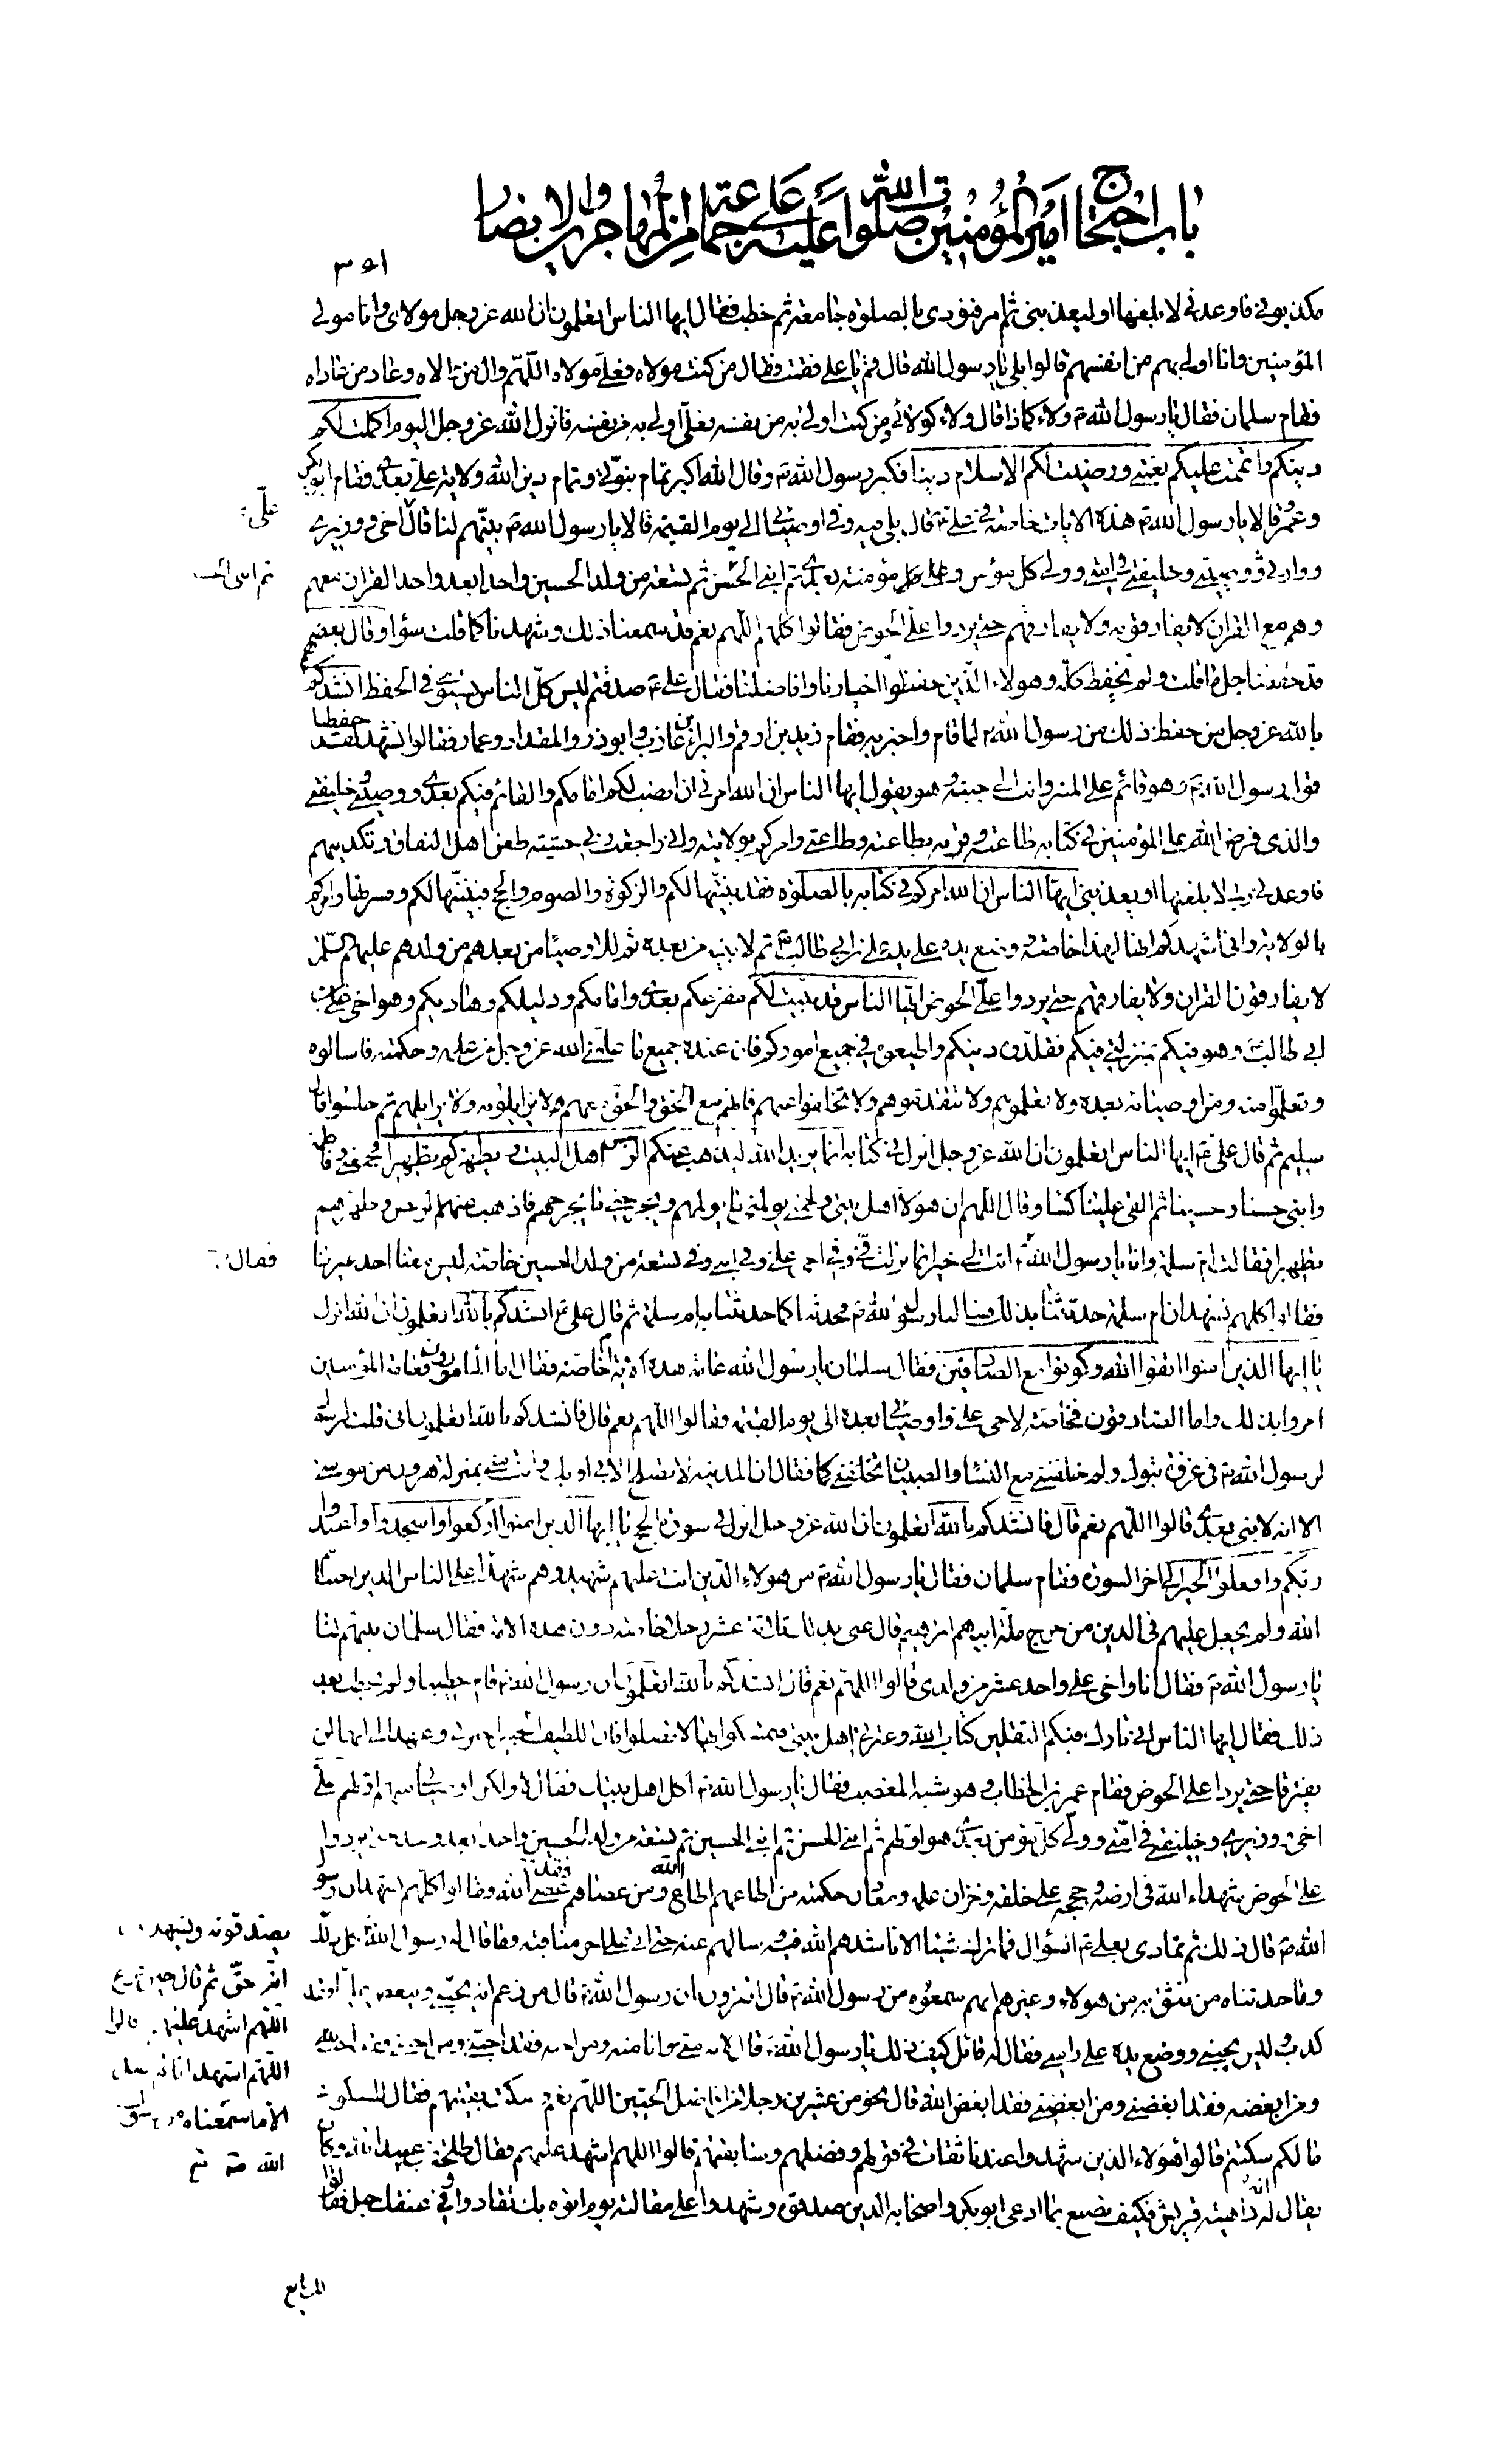 باب احتجاج امير المؤمنين صلوات الله عليه على جماعة من المهاجرين والانصار
مكذبوني فاوعدني لابلغنها او ليعذبني ثم امر فنودى بالصلوة جامعة ثم خطب فقال ايها الناس اتعلمون ان الله عز وجل مولاي وانا مولى
المؤمنين وانا اولى بهم من انفسهم قالوا بلى يا رسول الله قال قم يا على فقمت فقال من كنت مولاه فعلى مولاه اللهم وال من والاه وعاد من عاداه
فقام سلمان فقال يا رسول الله ولاء كماذا قال ولاء كولائي من كنت اولى به من نفسه فعلى اولى به من نفسه فانزل الله عز وجل اليوم اكملت لكم
دينكم واتممت عليكم نعمتي ورضيت لكم الاسلام دينا فكبر رسول الله وقال الله اكبر تمام نبوتي وتمام دين الله ولاية على بعدي فقام ابو بكر
وعمر قالا يا رسول الله هذه الايات خاصة في على قال بلى فيه وفي اوصيائي الى يوم القيمة قالا يا رسول الله بينهم لنا قال اخى ووزيرى
على
ووارثى ووصيى وخليفتى في امتى وولى كل مؤمن ومؤمنة بعدي ثم ابني الحسن ثم تسعة من ولد الحسين واحد بعد واحد القران معهم
وهم مع القران لا يفارقونه ولا يفارقهم حتى يردوا على الحوض فقالوا كلهم اللهم نعم قد سمعنا ذلك وشهدنا كما قلت سواء وقال بعضهم
قد حفظنا جل ما قلت ولم نحفظ كله وهؤلاء الذين حفظوا اخيارنا وافاضلنا فقال على صدقتم ليس كل الناس يستوى في الحفظ انشدكم
بالله عز وجل من حفظ ذلك من رسول الله لما قام واخبر به فقام زيد بن ارقم والبراء بن عازب وابو ذر والمقداد وعمار فقالوا نشهد لقد حفظنا
قول رسول الله وهو قائم على المنبر وانت الى جنبه وهو يقول ايها الناس ان الله امرنى ان انصب لكم امامكم والقائم فيكم بعدي ووصيى وخليفتى
والذى فرض الله على المؤمنين في كتابه طاعته وقرنه بطاعته وطاعتى وامركم بولايته وانى راجعت ربى خشية طعن اهل النفاق وتكذيبهم
فاوعدنى ربى لابلغنها او يعذبنى ايها الناس ان الله امركم في كتابه بالصلوة فقد بينتها لكم والزكوة والصوم والحج فبينتها لكم وفسرتها وامركم
بالولاية وانى اشهدكم انها لهذا خاصة ووضع يده على يد على بن ابى طالب ثم لابنيه من بعده ثم للاوصياء من بعدهم من ولدهم عليهم السلم
لا يفارقون القران ولا يفارقهم حتى يردوا على الحوض ايها الناس قد بينت لكم مفزعكم بعدي وامامكم ودليلكم وهاديكم وهو اخى على بن
ابى طالب وهو فيكم بمنزلتى فيكم فقلدوه دينكم واطيعوه في جميع اموركم فان عنده جميع ما علمنى الله عز وجل من علمه وحكمته فاسالوه
وتعلموا منه ومن اوصيائه بعده ولا تعلموهم ولا تتقدموهم ولا تخلفوا عنهم فانهم مع الحق والحق معهم ولا يزايلونه ولا يزايلهم ثم جلسوا قال
سليم ثم قال على ايها الناس اتعلمون ان الله عز وجل انزل في كتابه انما يريد الله ليذهب عنكم الرجس اهل البيت ويطهركم تطهيرا فجمعنى وفاطمة
وابنى حسنا وحسينا ثم القى علينا كساء وقال اللهم ان هؤلاء اهل بيتى ولحمتى يولمنى ما يولمهم ويجرحنى ما يجرحهم فاذهب عنهم الرجس وطهرهم
تطهيرا فقالت ام سلمة وانا يا رسول الله
فقال
انت الى خير انما نزلت في وفي اخى على وفي ابنى وفي تسعة من ولد الحسين خاصة ليس معنا احد غيرنا
فقالوا كلهم نشهد ان ام سلمة حدثتنا بذلك فسالنا رسول الله فحدثنا كما حدثتنا به ام سلمة ثم قال على انشدكم بالله اتعلمون ان الله انزل
يا ايها الذين امنوا اتقوا الله وكونوا مع الصادقين فقال سلمان يا رسول الله عامة هذه ام خاصة فقال اما المامورون فعامة المؤمنين
امروا بذلك واما الصادقون فخاصة لاخى على واوصيائي بعده الى يوم القيمة فقالوا اللهم نعم قال فانشدكم بالله اتعلمون انى قلت
لرسول الله في غزوة تبوك ولم خلفتنى مع النساء والصبيان فقال ان المدينة لا تصلح الا بى او بك وانت منى بمنزلة هرون من موسى
الا انه لا نبى بعدي قالوا اللهم نعم قال فانشدكم بالله اتعلمون ان الله عز وجل انزل في سورة الحج يا ايها الذين امنوا اركعوا واسجدوا واعبدوا
ربكم وافعلوا الخير الى اخر السورة فقام سلمان فقال يا رسول الله من هؤلاء الذين انت عليهم شهيد وهم شهداء على الناس الذين اجتباهم
الله ولم يجعل عليهم في الدين من حرج ملة ابيهم ابرهيم قال عنى بذلك ثلثة عشر رجلا خاصة دون هذه الامة فقال سلمان بينهم لنا
يا رسول الله فقال انا واخى على واحد عشر من ولدى قالوا اللهم نعم قال انشدكم بالله اتعلمون ان رسول الله قام خطيبا ولم يخطب بعد
ذلك فقال ايها الناس انى تارك فيكم الثقلين كتاب الله وعترتى اهل بيتى فتمسكوا بهما لا تضلوا فان اللطيف الخبير اخبرنى وعهد الى انهما لن
يفترقا حتى يردا على الحوض فقام عمر بن الخطاب وهو شبه المغضب فقال يا رسول الله اكل اهل بيتك فقال لا ولكن اوصيائي منهم اولهم على
اخى ووزيرى وخليفتى في امتى وولى كل مؤمن بعدي هو اولهم ثم ابنى الحسن ثم ابنى الحسين ثم تسعة من ولد الحسين واحد بعد واحد حتى يردوا
على الحوض شهداء الله في ارضه وحججه على خلقه وخزان علمه ومعادن حكمته من اطاعهم اطاع الله ومن عصاهم فقد عصى الله وقالوا كلهم نشهد ان رسول
الله قال ذلك ثم تمادى بعلى السؤال فما ترك شيئا الا ناشدهم الله فيه وسالهم عنه حتى اتى على اخر مناقبه وما قال له رسول الله كل ذلك
يصدقونه ويشهدون
انه حق ثم قال
اللهم اشهد عليهم قالوا
اللهم اشهد انا لم نقل
الا ما سمعناه من رسول
الله
وما حدثناه من نثق به من هؤلاء وغيرهم انهم سمعوه من رسول الله قال اتقرون ان رسول الله قال من زعم انه يحبنى ويبغض عليا فقد
كذب وليس يحبنى ووضع يده على راسى فقال له قائل كيف ذلك يا رسول الله قال لانه منى وانا منه ومن احبه فقد احبنى ومن احبنى فقد احب الله
ومن ابغضه فقد ابغضنى ومن ابغضنى فقد ابغض الله قال نحو من عشرين رجلا من افاضل الحيين اللهم نعم وسكت بقيتهم فقال للسكوت
ما لكم سكتتم قالوا هؤلاء الذين شهدوا عندنا ثقات في قولهم وفضلهم وسابقتهم قالوا اللهم اشهد عليهم فقال طلحة بن عبيد الله وكان
يقال له داهية قريش فكيف نصنع بما ادعى ابو بكر واصحابه الذين صدقوه وشهدوا على مقالته يوم اتوه بك تقاد وفي عنقك حبل فقالوا